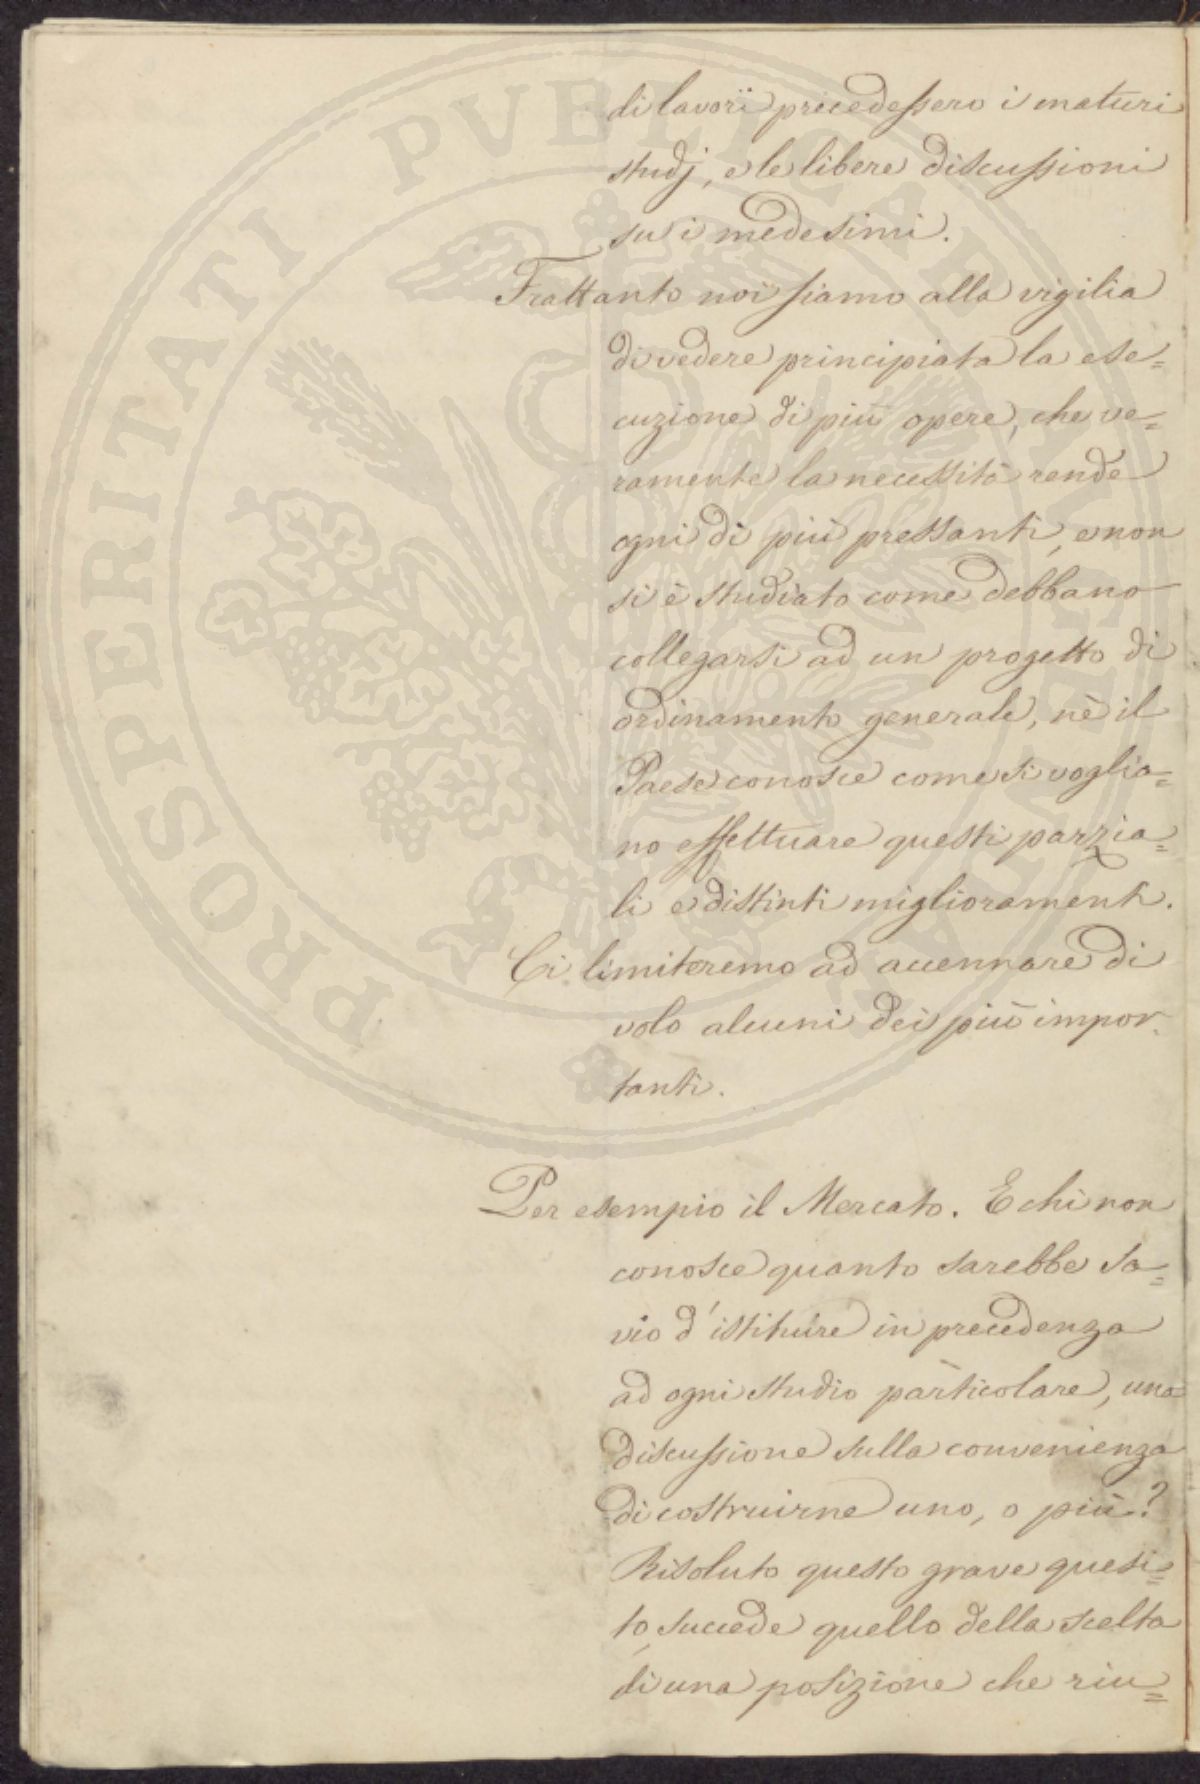 di lavori precedessero i maturi
studj, e le libere discussioni
su i medesimi.
Frattanto noi siamo alla vigilia
di vedere principiata la ese=
cuzione di più opere, che ve=
ramente la necessità rende
ogni dì più pressanti, e non
si è studiato come debbano
collegarsi ad un progetto di
ordinamento generale, nè il
Paese conosce come si voglia=
no effettuare questi parzia=
li e distinti miglioramenti.
Ci limiteremo ad accennare di
volo alcuni dei più impor=
tanti.
Per esempio il Mercato. E chi non
conosce quanto sarebbe sa=
vio d'istituire in precedenza
ad ogni studio particolare, una
discussione sulla convenienza
di costruirne uno, o più?
Risoluto questo grave quesi=
to, succede quello della scelta
di una posizione che riu=
PROSPERITATI PVBLICAE AVGENDAE